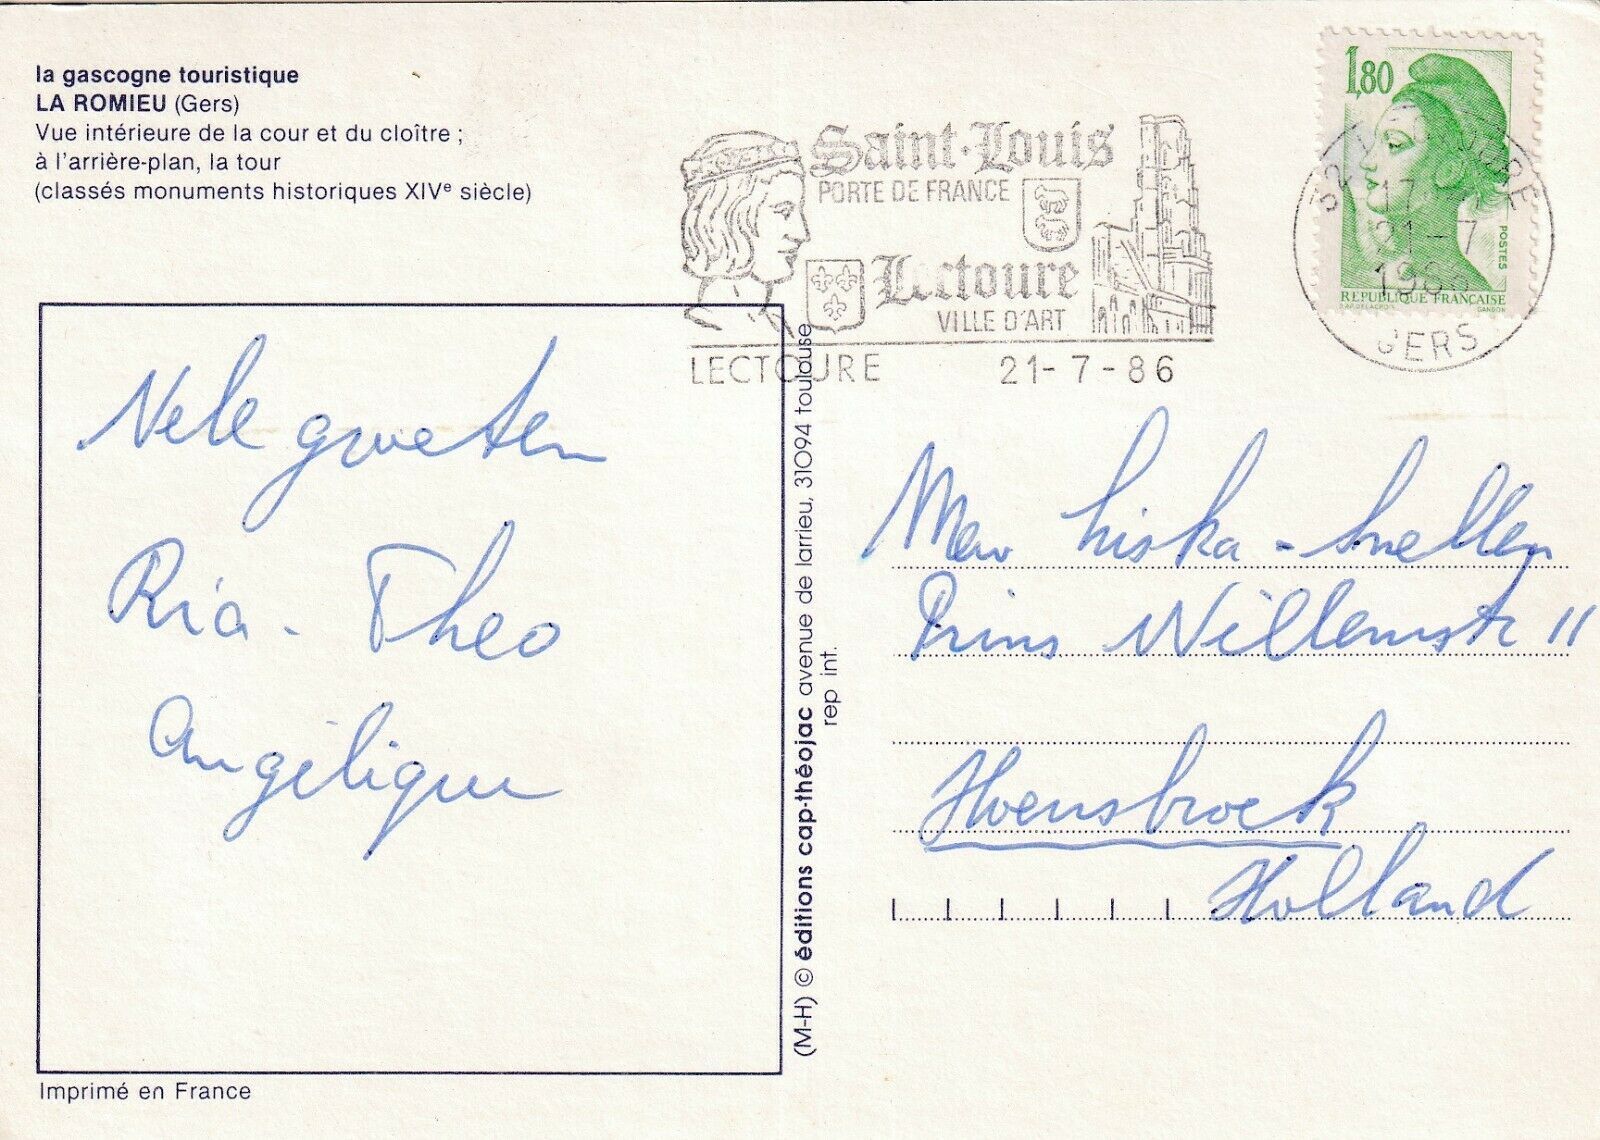 la gascogne touristique
LA ROMIEU (Gers)
Vue intérieure de la cour et du cloître ;
à l'arrière-plan, la tour
(classés monuments historiques XIVe siècle)
Saint-Louis
PORTE DE FRANCE
Lectoure
VILLE D'ART
LECTOURE 21-7-86
1,80
POSTES
REPUBLIQUE FRANÇAISE
GANDON
17
21-7
1986
GERS
Vele groeten
Ria - Theo
Angélique
(M-H) © éditions cap-théojac avenue de larrieu, 31094 toulouse
rep int.
Mew Liska - Snellen
Prins Willemstr 11
Hoensbroek
Holland
Imprimé en France